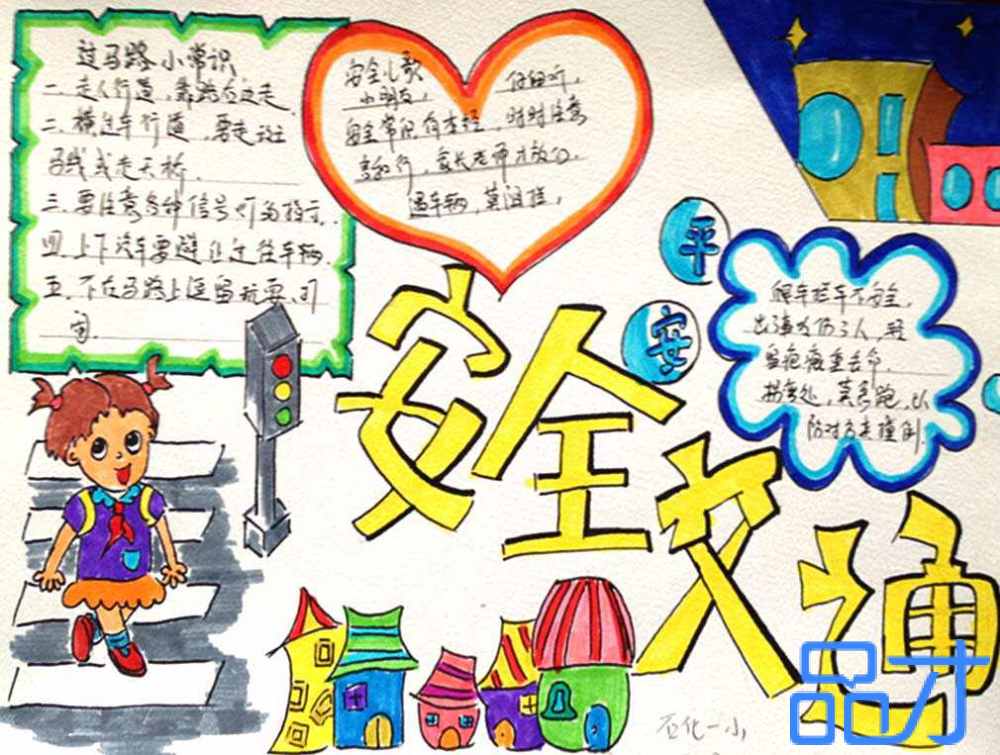 过马路小常识
一.走人行道,靠路右边走.
二.横过车行道,要走斑
马线或走天桥.
三.要注意各种信号灯的指示.
四.上下汽车要避让过往车辆.
五.不在马路上逗留玩耍、打
闹.
安全儿歌
小朋友, 仔细听,
安全常识有本经, 时时注意
家长老师才放心.
遇车辆,莫阻挡,
平
安
爬车拦车不安全,
拐弯处,莫急跑,以
防对方来撞倒.
安全交通
石化一小
品才